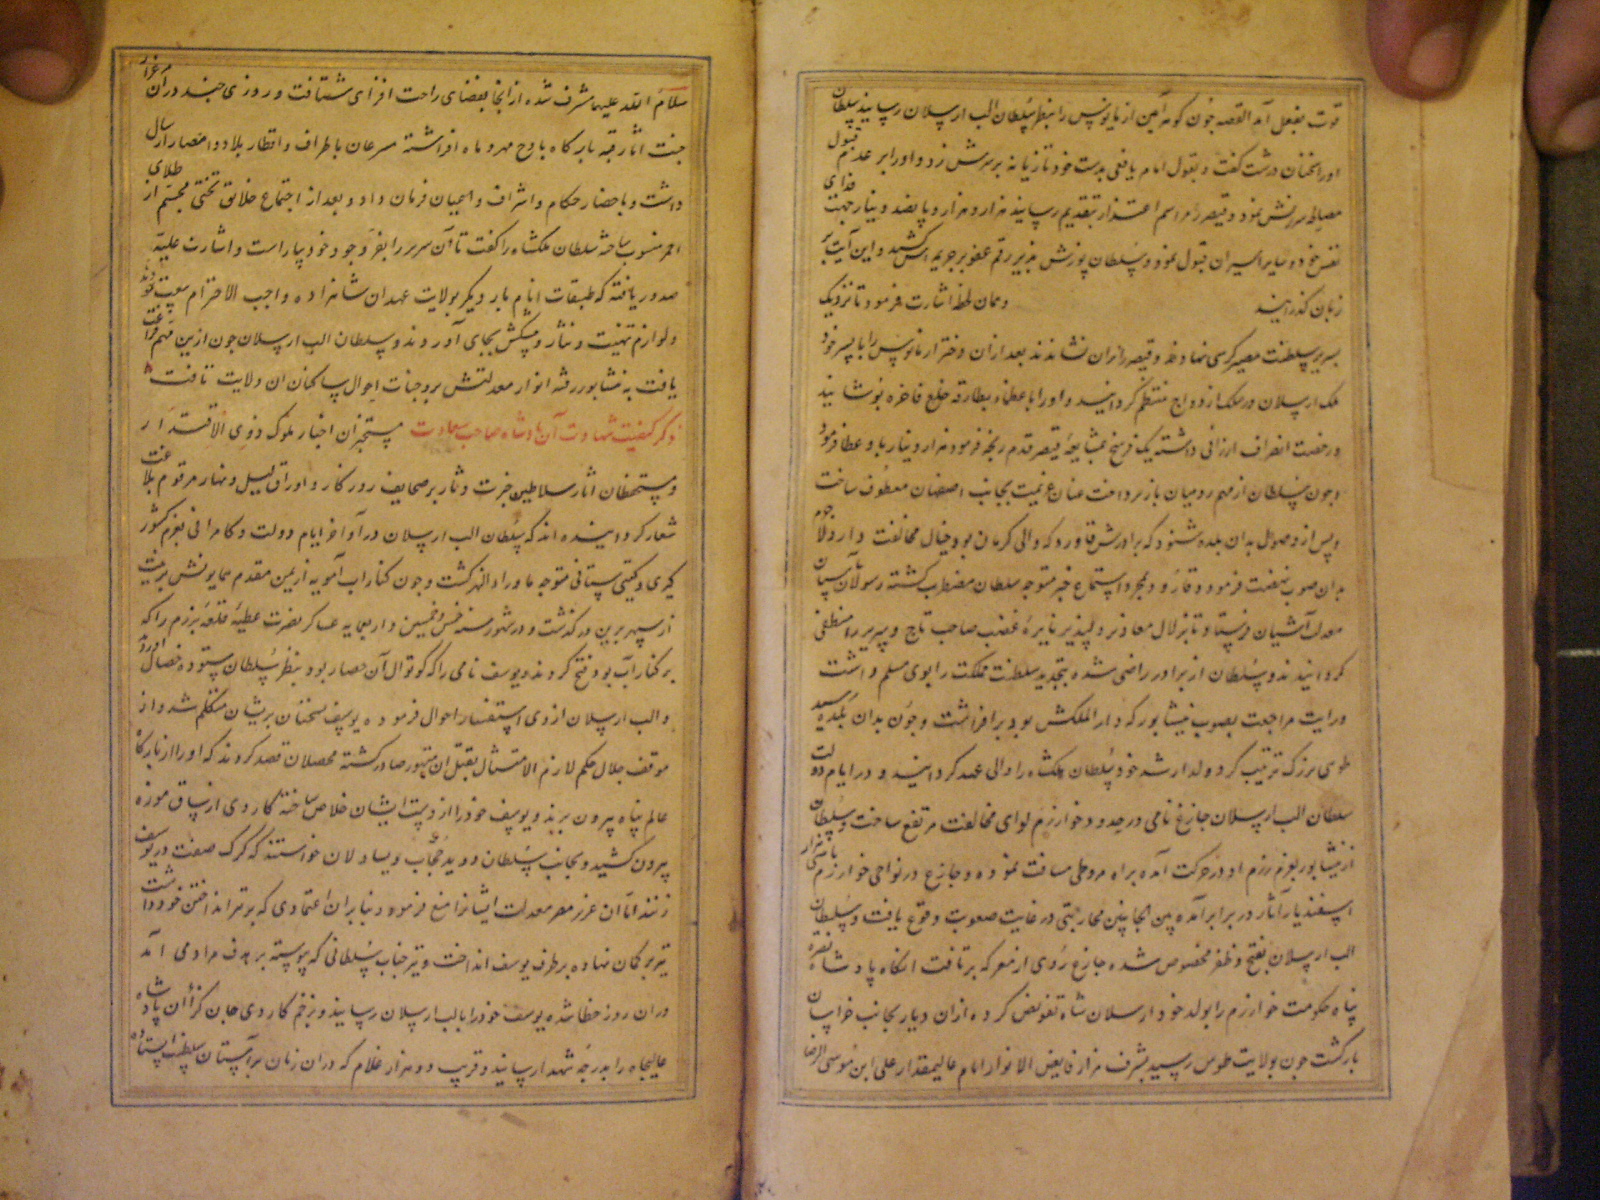 قوت بفعل آمد القصه چون گوهرآیین ارمانوس را بنظر سلطان الب ارسلان رسانید سلطان
اورا سخنان درشت گفت و بقول امام یافعی بدست خود تازیانه بر سرش زد و اورا بر عدم قبول
مصالحه سرزنش نمود و قیصر مراسم اعتذار بتقدیم رسانید هزار و هزار و پانصد دینار جهت فدای
نفس خود و سایر اسیران قبول نمود و سلطان پوزش پذیر رقم عفو بر جریمه اش کشید و این آیت بر
زبان گذرانید و همان لحظه اشارت فرمود تا نزدیک
بسریر سلطنت مصیر کرسی نهادند و قیصر را بران نشاندند بعد ازان دختر ارمانوس را با پسر خود
ملک ارسلان در سلک ازدواج منتظم گردانید و اورا با عظماء بطارقه خلع فاخره پوشانید
و رخصت انصراف ارزانی داشته یک فرسخ بمشایعهٔ قیصر قدم رنجه فرمود و هزار دینار باو عطا فرمود
و چون سلطان از مهم رومیان باز پرداخت عنان عزیمت بجانب اصفهان معطوف ساخت
و پس از وصول بدان بلده شنود که برادرش قاورد که والی کرمان بود خیال مخالفت دارد لاجرم
بدان صوب نهضت فرمود و قاورد بمجرد استماع خبر توجه سلطان مضطرب گشته رسولان بآستان
معدلت آشیان فرستاد تا بزلال معاذیر دلپذیر نایرهٔ غضب صاحب تاج و سریر را منطفی
گردانیدند و سلطان از برادر راضی شده بتجدید سلطنت مملکت را بوی مسلم داشت
و رایت مراجعت بصوب نیشابور که دار الملکش بود برافراشت و چون بدان بلده رسید
طوی بزرگ ترتیب کرد و ولد ارشد خود سلطان ملکشاه را ولی عهد گردانید و در ایام دولت
سلطان الب ارسلان جازغ نامی در حدود خوارزم لوای مخالفت مرتفع ساخت و سلطان
از نیشابور بعزم رزم او در حرکت آمده براه مرو طی مسافت نموده و جازغ در نواحی خوارزم با سی هزار
اسفندیار آثار در برابر آمده بین الجانبین محاربتی در غایت صعوبت وقوع یافت و سلطان
الب ارسلان بفتح و ظفر مخصوص شده جازغ روی از معرکه برتافت انگاه پادشاه نصرة
پناه حکومت خوارزم را بولد خود ارسلان شاه تفویض کرده ازان دیار بجانب خراسان
بازگشت چون بولایت طوس رسید بشرف مزار فایض الانوار امام عالیمقدار علی ابن موسی الرضا
سلام الله علیهما مشرف شده از انجا بفضای راحت افزای شتافت و روزی چند دران مرغزار
جنت اثار قبه بارگاه باوج مهر و ماه افراشته مسرعان باطراف و اقطار بلاد و امصار ارسال
داشت و باحضار حکام و اشراف و اعیان فرمان داد و بعد از اجتماع خلایق تختی مجسم از طلای
احمر منصوب ساخته سلطان ملکشاه را گفت تا آن سریر را بفر وجود خود بیاراست و اشارت علیه
صدور یافته که طبقات انام بار دیگر بولایت عهد ان شاهزاده واجب الاحترام بیعت نمودند
و لوازم تهنیت و نثار و پیشکش بجای آوردند و سلطان الب ارسلان چون ازین مهم فراغت
یافت به نیشابور رفته انوار معدلتش بر وجنات احوال ساکنان ان ولایت تافت
ذکر کیفیت شهادت آن پادشاه صاحب سعادت مستخبران اخبار ملوک ذوی الاقتدار
و مستحفظان اثار سلاطین جرت دثار بر صحایف روزگار و اوراق لیل و نهار مرقوم بلاغت
شعار گردانیده اند که سلطان الب ارسلان در آواخر ایام دولت و کامرانی بعزم کشور
گیری و گیتی ستانی متوجه ماوراء النهر گشت و چون کنار اب آمویه از یمن مقدم همایونش بزینت
از سپهر برین درگذشت و در شهور سنه خمس و خمسین و اربعمایه عساکر نصرت عطیه قلعه برزم را که
بر کنار آب بود فتح کردند و یوسف نامی را که کوتوال آن حصار بود بنظر سلطان ستوده خصال اوردند
و الب ارسلان از وی استفسار احوال فرموده یوسف سخنان پریشان متکلم شد و از
موقف جلال حکم لازم الامتثال بقتل ان متهور صادر گشته محصلان قصد کردند که اورا از بارگاه
عالم پناه بیرون برند و یوسف خود را از دست ایشان خلاص ساخته کاردی از ساق موزه
بیرون کشید و بجانب سلطان دوید حجاب و یساولان خواستند که گرگ صفت در یوسف
زنند اما آن عزیز مصر معدلت ایشانرا منع فرمود و بنا بران اعتمادی که بر تیر انداختن خود داشت
تیر بر کمان نهاده بر طرف یوسف انداخت و تیر جناب سلطانی که پیوسته بر هدف مراد می آمد
دران روز خطا شده یوسف خود را بالب ارسلان رسانید و بزخم کاردی جان گزا ان پادشاه
عالیجاه را بدرجهٔ شهدا رسانید و قریب دو هزار غلام که دران زمان بر آستان سلطنت ایستاده